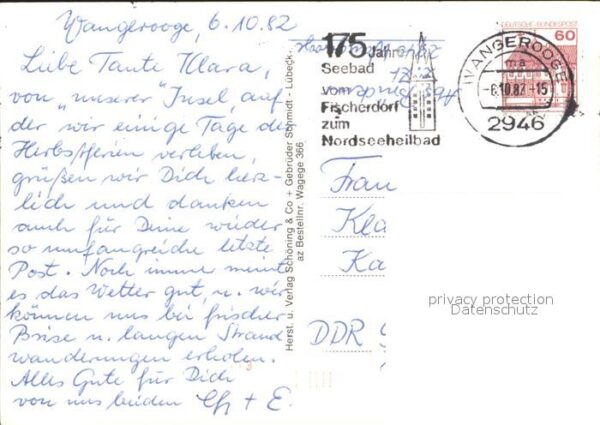 Wangerooge, 6.10.82
Liebe Tante Klara,
von "unserer" Insel auf
der wir einige Tage der
Herbstferien verleben,
grüßen wir Dich herz-
lich und danken
auch für Deine wieder
so umfangreiche letzte
Post. Noch immer meint
es das Wetter gut, u. wir
können uns bei frischer
Brise u. langen Strand
wanderungen erholen.
Alles Gute für Dich
von uns beiden Ch + E.
Herst. u. Verlag Schöning & Co + Gebrüder Schmidt - Lübeck
az Bestellnr. Wagege 366
175 Jahre
Seebad
vom
Fischerdorf
zum
Nordseeheilbad
DEUTSCHE BUNDESPOST
60
WANGEROOGE
ma
-6.10.82-15
2946
Frau
Kla
Ka
DDR
privacy protection
Datenschutz